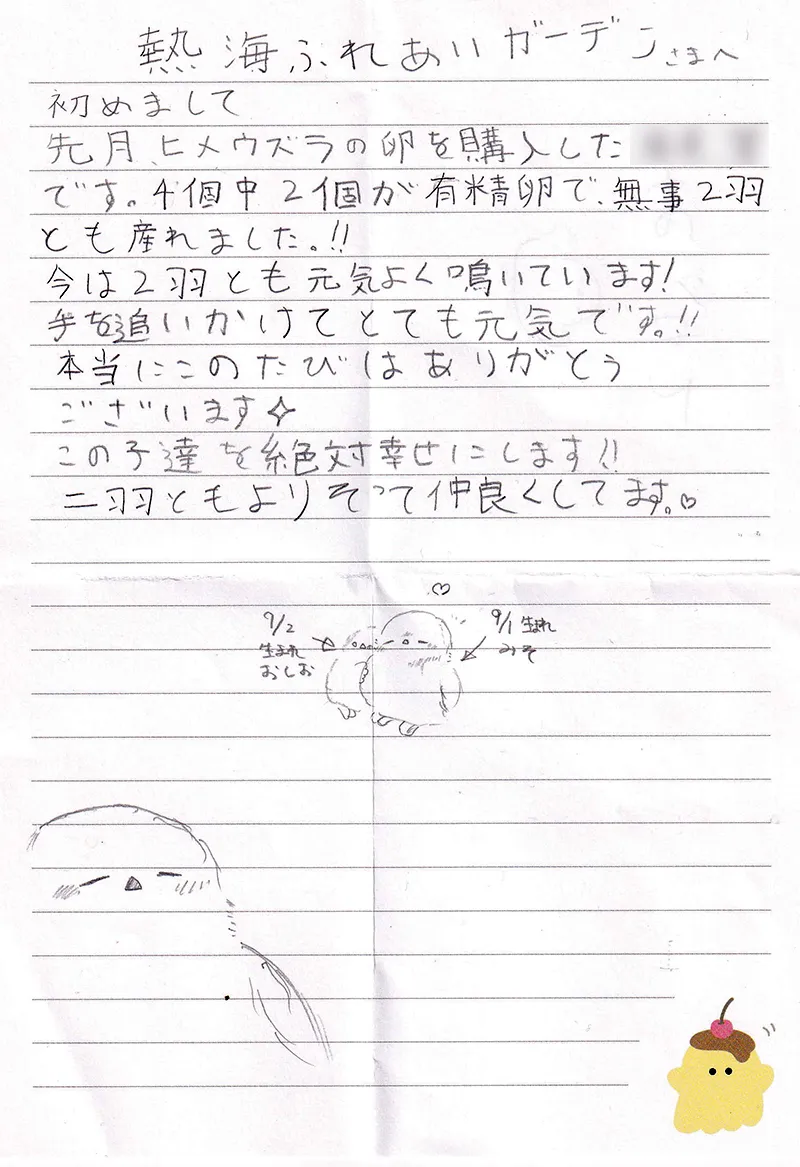 熱海ふれあいガーデンさまへ
初めまして
先月、ヒメウズラの卵を購入した
です。4個中2個が有精卵で、無事2羽
とも産れました。!!
今は2羽とも元気よく鳴いています!
手を追いかけてとても元気です。!!
本当にこのたびはありがとう
ございます✧
この子達を絶対幸せにします!!
二羽ともよりそって仲良くしてます。♡
♡
9/2
生まれ
おしお
9/1 生まれ
みそ